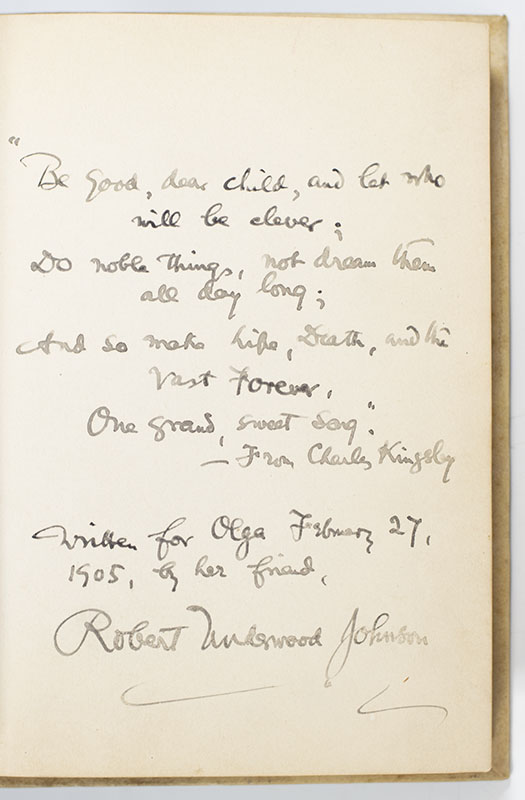 "Be good, dear child, and let who
will be clever;
Do noble things, not dream them
all day long;
And so make Life, Death, and the
Vast Forever,
One grand, sweet song."
— From Charles Kingsley
Written for Olga February 27,
1905, by her friend,
Robert Underwood Johnson